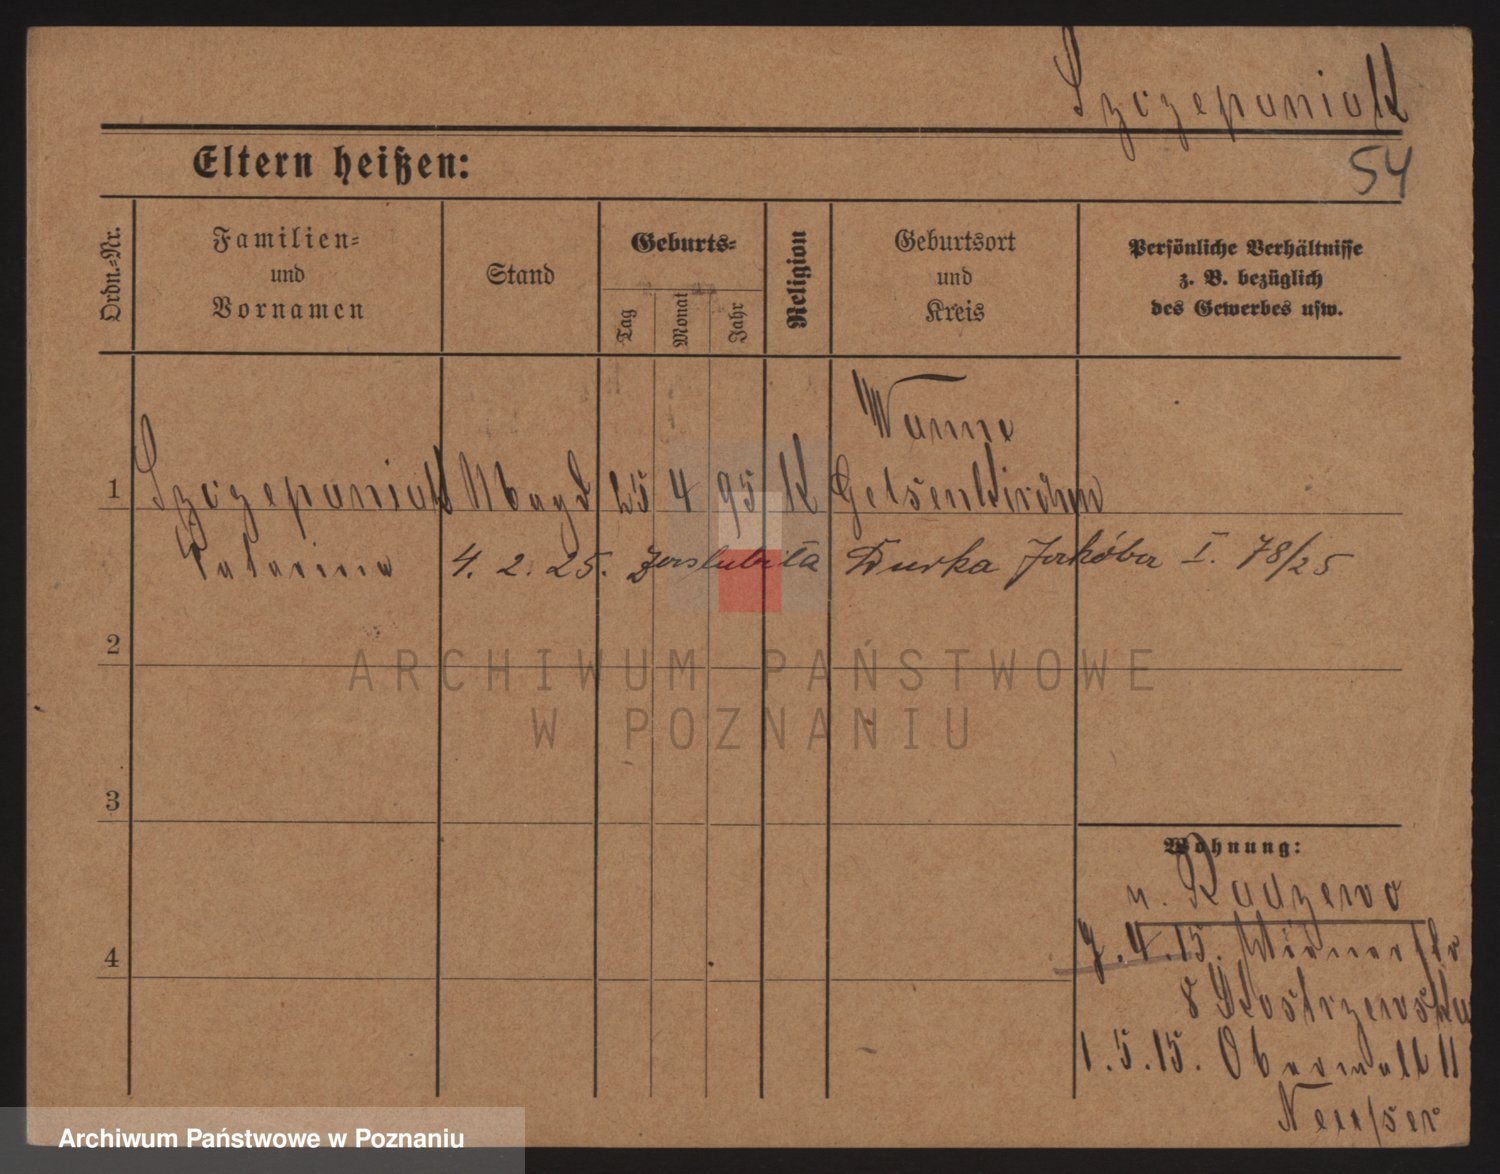 Szczepaniak
54
Eltern heißen:
Ordn.-Nr.
Familien-
und
Vornamen
Stand
Geburts-
Tag
Monat
Jahr
Religion
Geburtsort
und
Kreis
Persönliche Verhältnisse
z. B. bezüglich
des Gewerbes usw.
Wanne
1 Szczepaniak Magd 25 4 95 K Gelsenkirchen
4. 2. 25. zaślubiła Durka Jakóba I. 78/25
2
ARCHIWUM PAŃSTWOWE
W POZNANIU
3
Wohnung:
v. Radzewo
4
7.4.15.
8 Kostrzewska
1.5.15. Oberwall 11
Archiwum Państwowe w Poznaniu